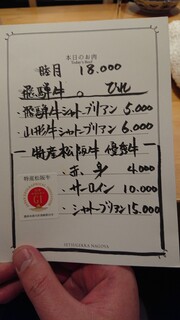 本日のお肉
Today's Meat
時月 18.000
飛騨牛 。 ひれ
・飛騨牛シャトーブリアン 5.000
・山形牛シャトーブリアン 6.000
ー特産松阪牛 優秀牛ー
特産松阪牛
・赤身 4.000
・サーロイン 10.000
・シャトーブリアン 15.000